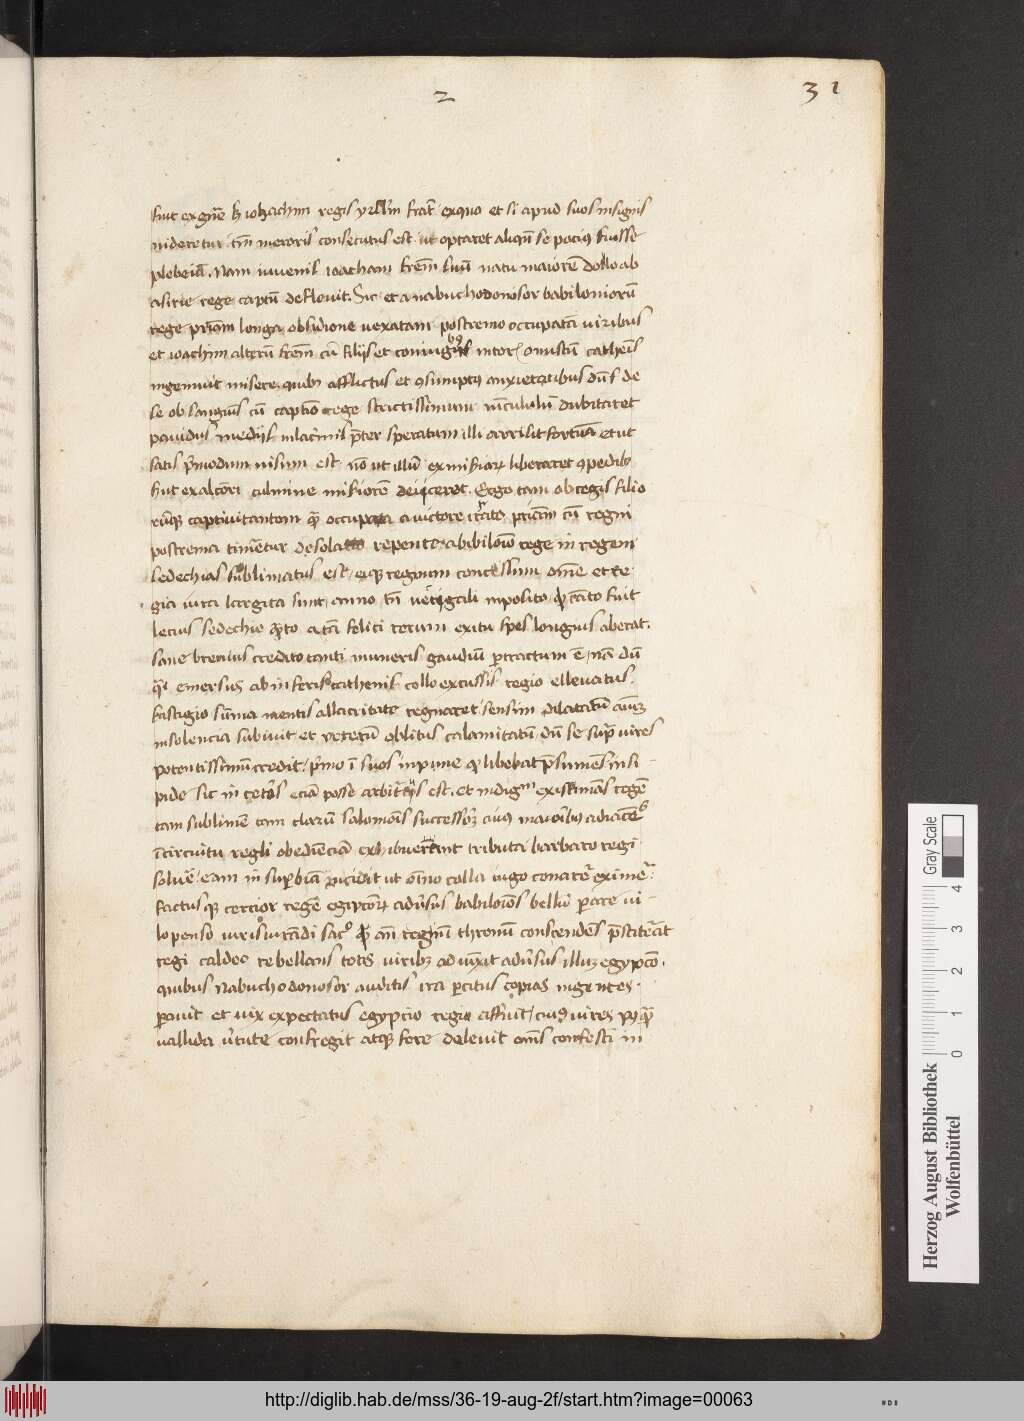 2
31
fuit ex gñe hioachim regis yrlm̃ frat̃ exquo et si apud suos insignis
uideretur tm̃ meroris consecutus est ut optaret aliqñ se pocius fuisse
plebeiũ. Nam iuvenis ioacham frẽm suũ natu maiorẽ dollo ab
asirie rege captũ deflevit. Sic et a nabuchodonosor babiloniorũ
rege priam longa obsidione vexatam postremo occupatã viribus
et ioachim alterũ frẽm cũ filijs et coniugibus onustũ cathenis
ingemuit misere, quibus afflictus et ɔsumptus anxietatibus dũ de
se ob sanguĩs cũ captiõ rege strictissimum uĩculum dubitaret
pavidus medijs in lacrimis p̃ter speratum illi arrisit fortuna et ut
satis p̃modum uisum est nõ ut illũ ex infimar̃ liberaret ɔpedibus
sut exalciori culmine infiorẽ deijceret. Ergo tam ob regis filio
rumq̃ captivitantem q̃ occupata a victore irato p̃riam cũ regni
postrema timetur desola repente a bibilonio rege in regem
Sedechias sublimatus est, eiq̃ regnum concessum oñe et re
gia iura largita sunt, anno tñ vetigali inposito, q̃ tãto fuit
letius sedechie q̃to a tã felici rerum exitu spes longius aberat.
sane brevius credito tanti muneris gaudiũ p̃tractum ẽ, nã dũ
q̃i emersus ab inferis cathenis collo excussis regio ellevatus
fastigio sũma mentis allacritate regnaret sensim dilatatũ
insolencia subivit et veterũ oblitus calamitatũ dũ se sup̃ vires
potentissimũ credit, p̃mo ĩ suos inpune q̃ libebat p̃sumẽs insi-
pide sic in cetẽs eciã posse arbitratus est. et indignũ existimãs regẽ
tam sublimẽ tam clarũ salomonis successorẽ cuius maioribus adiacẽtes
ĩ circuitu regli obediẽciã exhibuerant tributa barbaro regi
solvẽ, eam in supbiã p̃cidit ut oĩno colla iugo conaret eximẽ.
factus q̃ cercior regẽ egiptiorũ adũsus babilonios bellũ parare ui-
lopenso iurisiurãdi sacro q̃ añ regni thronũ conscendẽs p̃stiterat
regi caldeo rebellans totis viribus aduixit adũsus illum egypcio.
quibus Nabuchodonosor auditis ira percitus copias ingentes.
paravit et vix expectatus egypcio regi affuit, cuius vires
vallida virtute confregit atq̃ fere delevit oms confesti in
Herzog August Bibliothek
Wolfenbüttel
Gray Scale
0 1 2 3 4
http://diglib.hab.de/mss/36-19-aug-2f/start.htm?image=00063